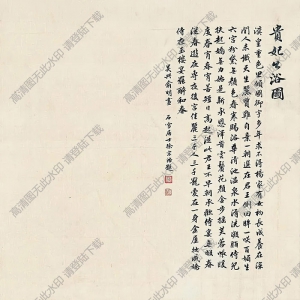 貴妃出浴圖
漢皇重色思傾國御宇多年求不得楊家有女初長成養在深
閨人未識天生麗質難自棄一朝選在君王側回眸一笑百媚生
六宮粉黛無顏色春寒賜浴華清池溫泉水滑洗凝脂侍兒
扶起嬌無力始是新承恩澤時雲鬢花顏金步搖芙蓉帳暖
度春宵春宵苦短日高起從此君王不早朝承歡侍宴無閒暇春
從春遊夜專夜後宮佳麗三千人三千寵愛在一身金屋妝成嬌
侍夜玉樓宴罷醉和春
吳興俞明畫 石雪居士徐宗浩題
高清图无此水印